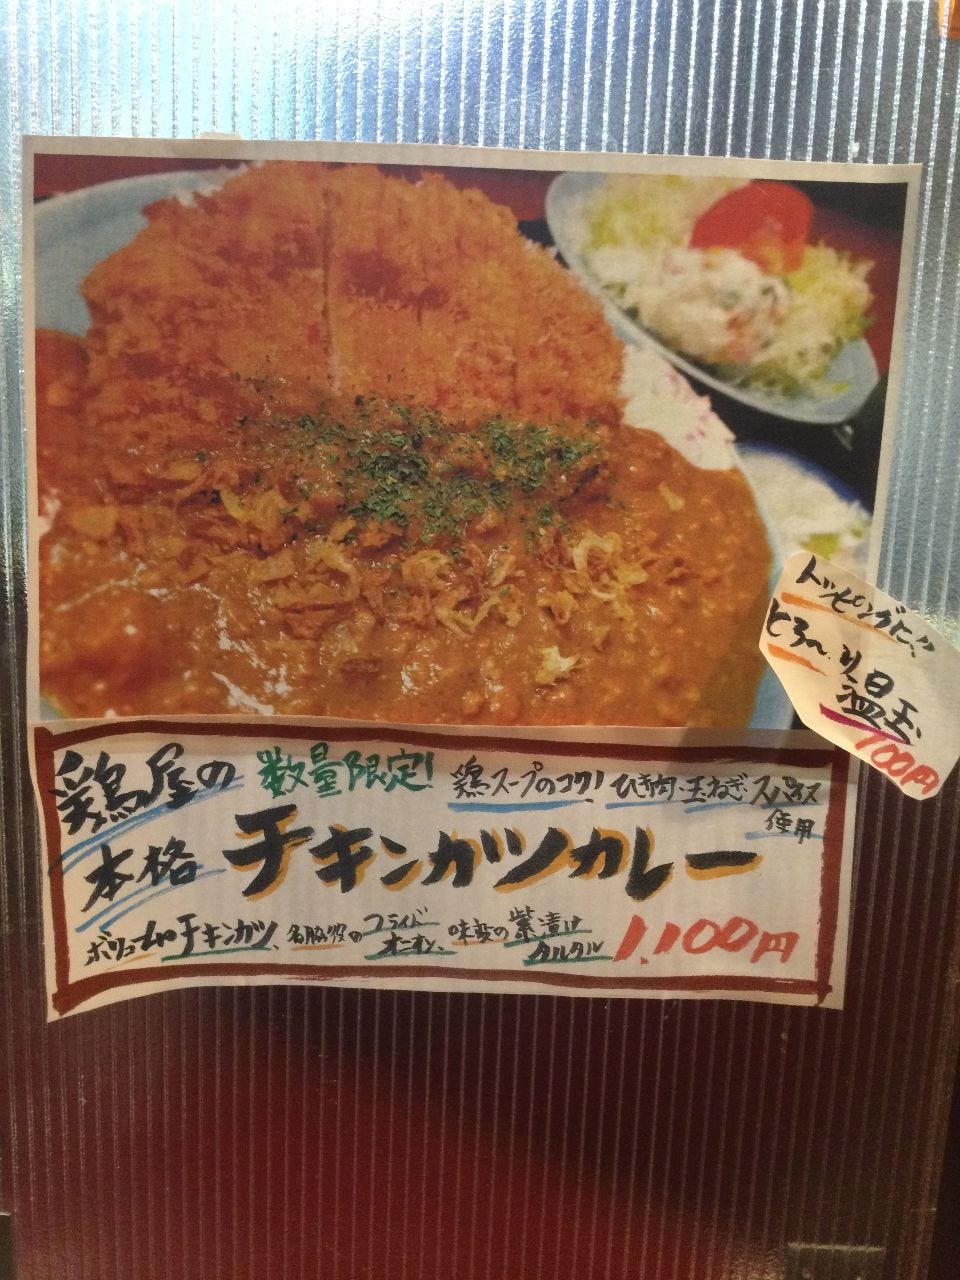 トッピングに!!
とろ〜り温玉
100円
鶏屋の 数量限定!
鶏スープのコク! ひき肉・玉ねぎ スパイス使用
本格 チキンカツカレー
ボリュームのチキンカツ、名脇役のフライドオニオン、味変の紫漬けタルタル
1,100円